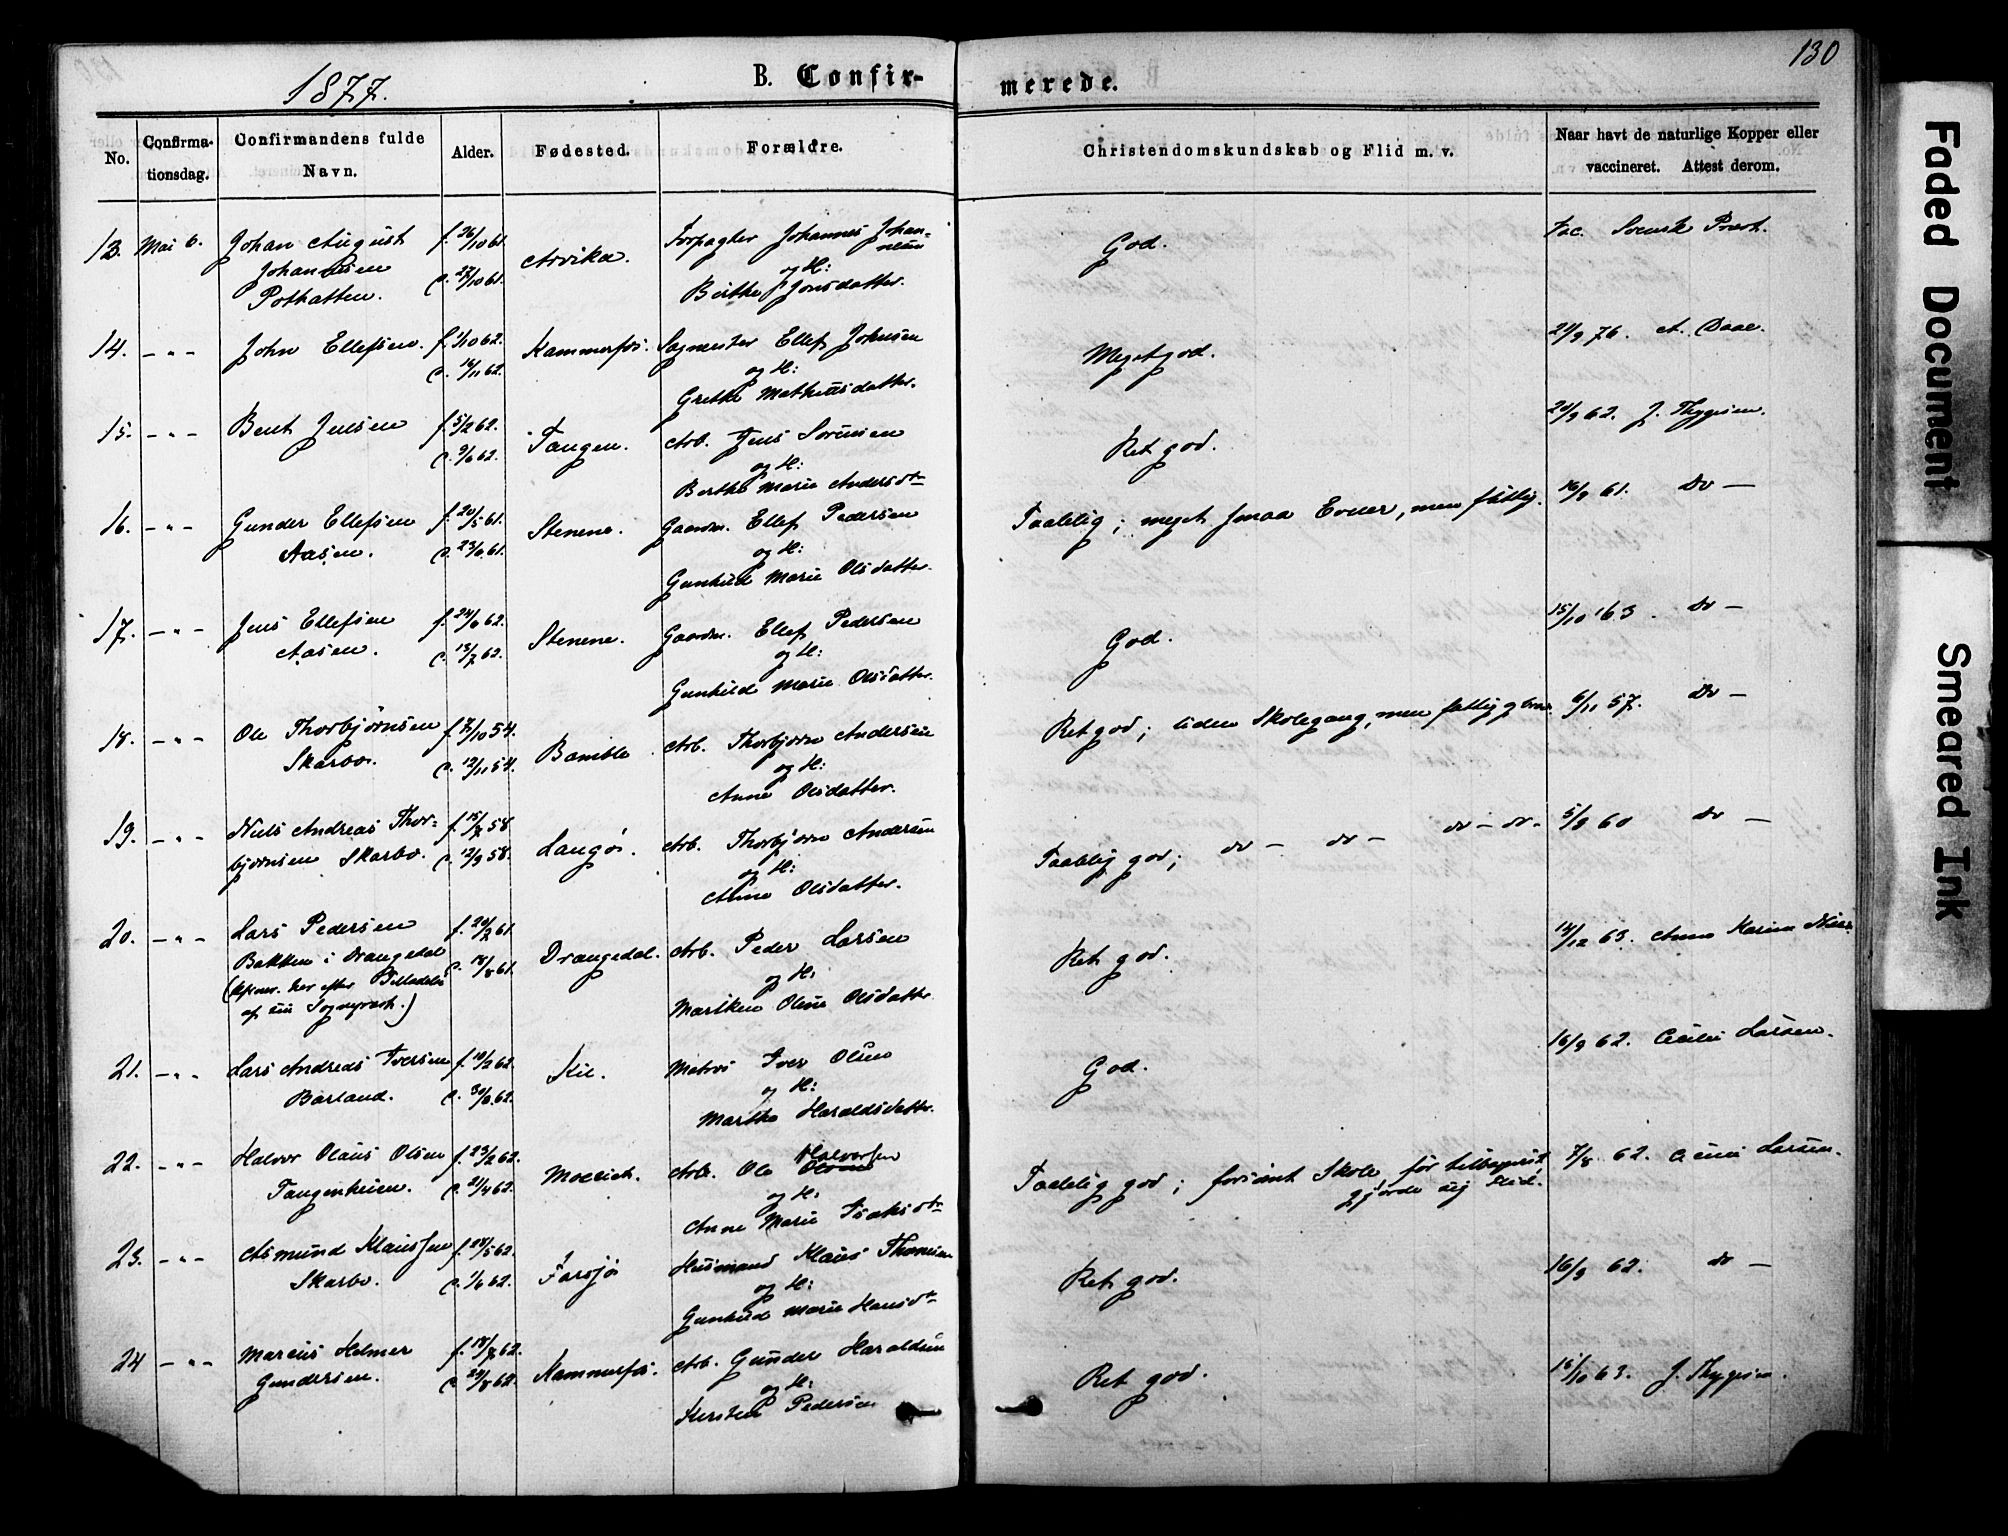 130
1877.
B. Confir-
merede.
No.
Confirma-
tionsdag.
Confirmandens fulde
Navn.
Alder.
Fødested.
Forældre.
Christendomskundskab og Flid m. v.
Naar havt de naturlige Kopper eller
vaccineret. Attest derom.
13. Mai 6. Johan August f. 26/10 61. Arvika. Forpagter Johannes Johan- God. Vac. Svensk Præst.
Johannesen c. 27/10 61. og H:
Pothatten. Berthe Jonsdatter.
14. -"- John Ellefsen. f. 1/10 62. Kammerfos. Ellef Johnsen Meget god. 21/9 76. A. Daae.
c. 16/11 62. og H:
Grethe Matheusdatter.
15. -"- Bent Jensen f. 5/2 62. Tangen. Arb. Jens Sørensen Ret god. 20/9 62. J. Thygesen.
c. 9/6 62. og H:
Berthe Marie Andersdtr
16. -"- Gunder Ellefsen f. 20/5 61. Stenene. Gaardm. Ellef Pedersen Taalelig; meget smaa Evner, men flittig. 16/9 61. Do -
Aasen. c. 23/6 61. og H:
Gunhild Marie Olsdatter.
17. -"- Jens Ellefsen f. 24/6 62. Stenene. Gaardm. Ellef Pedersen God. 15/10 63. Do -
Aasen. c. 13/7 62. og H:
Gunhild Marie Olsdatter.
18. -"- Ole Thorbjørnsen f. 7/10 54. Bamble. Arb. Thorbjørn Andersen Ret god; liden Skolegang, men 6/11 57. Do -
Skarbo. c. 12/11 54. og H:
Anne Olsdatter.
19. -"- Niels Andreas Thor- f. 15/7 58. Langø. Arb. Thorbjørn Andersen Taalelig god; do - do - do - do - 5/8 60 Do -
bjørnsen Skarbo. c. 12/9 58. og H:
Anne Olsdatter.
20. -"- Lars Pedersen f. 20/7 61. Drangedal. Arb. Peder Larsen Ret god. 14/12 63. Anne Karine
Bakken i Drangedal c. 18/8 61. og H:
her efter Martken Oline Olsdatter
af sin Sognepræst.)
21. -"- Lars Andreas Iversen f. 10/2 62. Kil. Matros Iver Olsen God. 16/9 62. Cecilie Larsen.
Barland. c. 30/6 62. og H:
Marthe Haraldsdatter.
22. -"- Halvor Olaus Olsen f. 23/2 62. Arb. Ole Halvorsen Taalelig god; forsømt Skole før 7/8 62. Cecilie Larsen.
Tangenheien. c. 21/4 62. og H: gjorde sig Flid.
Anne Marie Isaksdtr
23. -"- Asmund Klaussen f. 28/5 62. Farsjø Husmand Klaus Thomesen Ret god. 16/9 62. do -
Skarbo. c. 1/6 62. og H:
Gunhild Marie Hansdtr
24 -"- Marcus Helmer f. 18/7 62. Kammerfos. Arb. Gunder Haraldsen Ret god. 15/10 63. J. Thygesen.
Gundersen. c. 29/8 62. og H:
Kirsten Pedersen
Faded Document
Smeared Ink